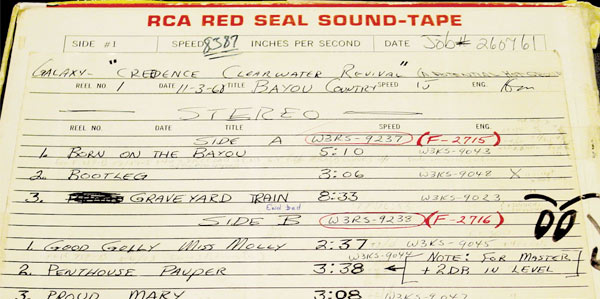 RCA RED SEAL SOUND-TAPE
SIDE #1 SPEED 8387 INCHES PER SECOND DATE Job# 260761
GALAXY- "CREDENCE CLEARWATER REVIVAL"
REEL NO. 1 DATE 11-3-68 TITLE BAYOU COUNTRY SPEED 15 ENG.
STEREO
REEL NO. DATE TITLE SPEED ENG.
SIDE A W3RS-9237 (F-2715)
1. BORN ON THE BAYOU 5:10 W3KS-9043
2. BOOTLEG 3:06 W3KS-9048 X
3. GRAVEYARD TRAIN 8:33 W3KS-9023
SIDE B W3RS-9238 (F-2716)
1. GOOD GOLLY MISS MOLLY 2:37 W3KS-9045
2. PENTHOUSE PAUPER 3:38 W3KS-9044 ← NOTE: FOR MASTER
+2DB IN LEVEL
3. PROUD MARY 3:08 W3KS-9047